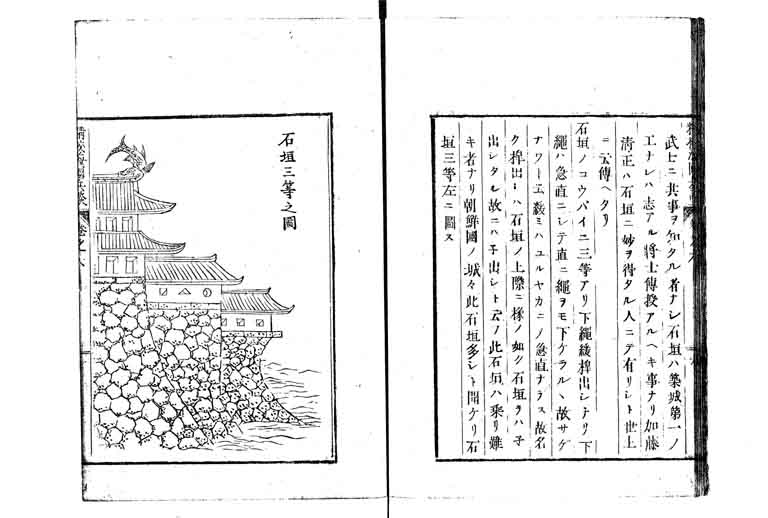 武士ニ共事ヲ知タル者ナシ石垣ハ築城第一ノ
工ナレハ志アル將士傳授アルヘキ事ナリ加藤
清正ハ石垣ニ妙ヲ得タル人ニテ有リシト世上
ニ云傳ヘタリ
石垣ノコウバイニ三等アリ下繩緩桿出シナリ下
繩ハ急直ニシテ直ニ繩ヲモ下ケラルヽ故サゲ
ナワト云緩ミハユルヤカニノ急直ナラス故名
ク桿出シハ石垣ノ上際ニ様ノ如ク石垣ヲハ子
出シタル故ニハ子出シト云フ此石垣ハ乘リ難
キ者ナリ朝鮮國ノ城々此石垣多シト聞ケリ石
垣三等左ニ圖ス
石垣三等之圖